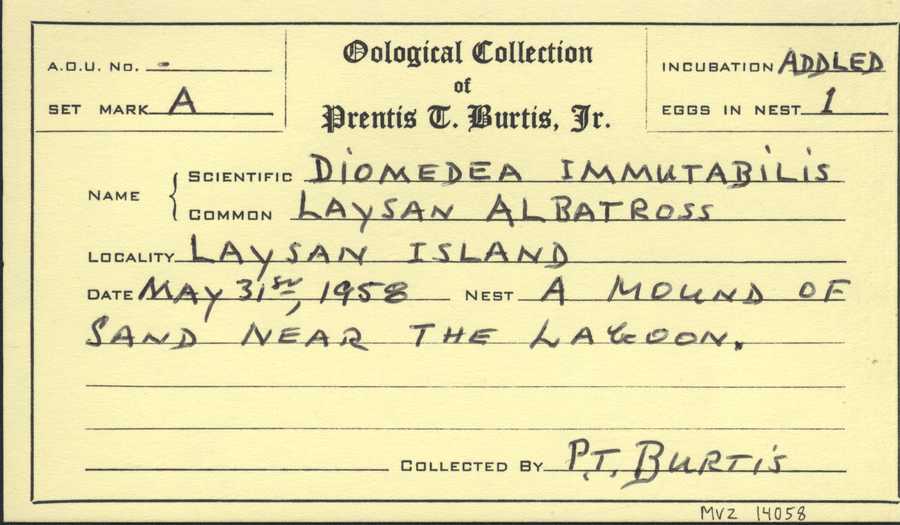 Oological Collection
of
Prentis T. Burtis, Jr.
A.O.U. No. -
SET MARK A
INCUBATION ADDLED
EGGS IN NEST 1
NAME { SCIENTIFIC DIOMEDEA IMMUTABILIS
COMMON LAYSAN ALBATROSS
LOCALITY LAYSAN ISLAND
DATE MAY 31st, 1958 NEST A MOUND OF
SAND NEAR THE LAGOON.
COLLECTED BY P.T. BURTIS
MVZ 14058